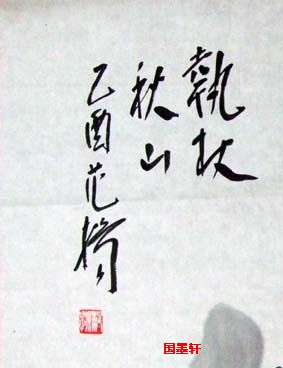 執杖
秋山
乙酉范揚
国墨轩